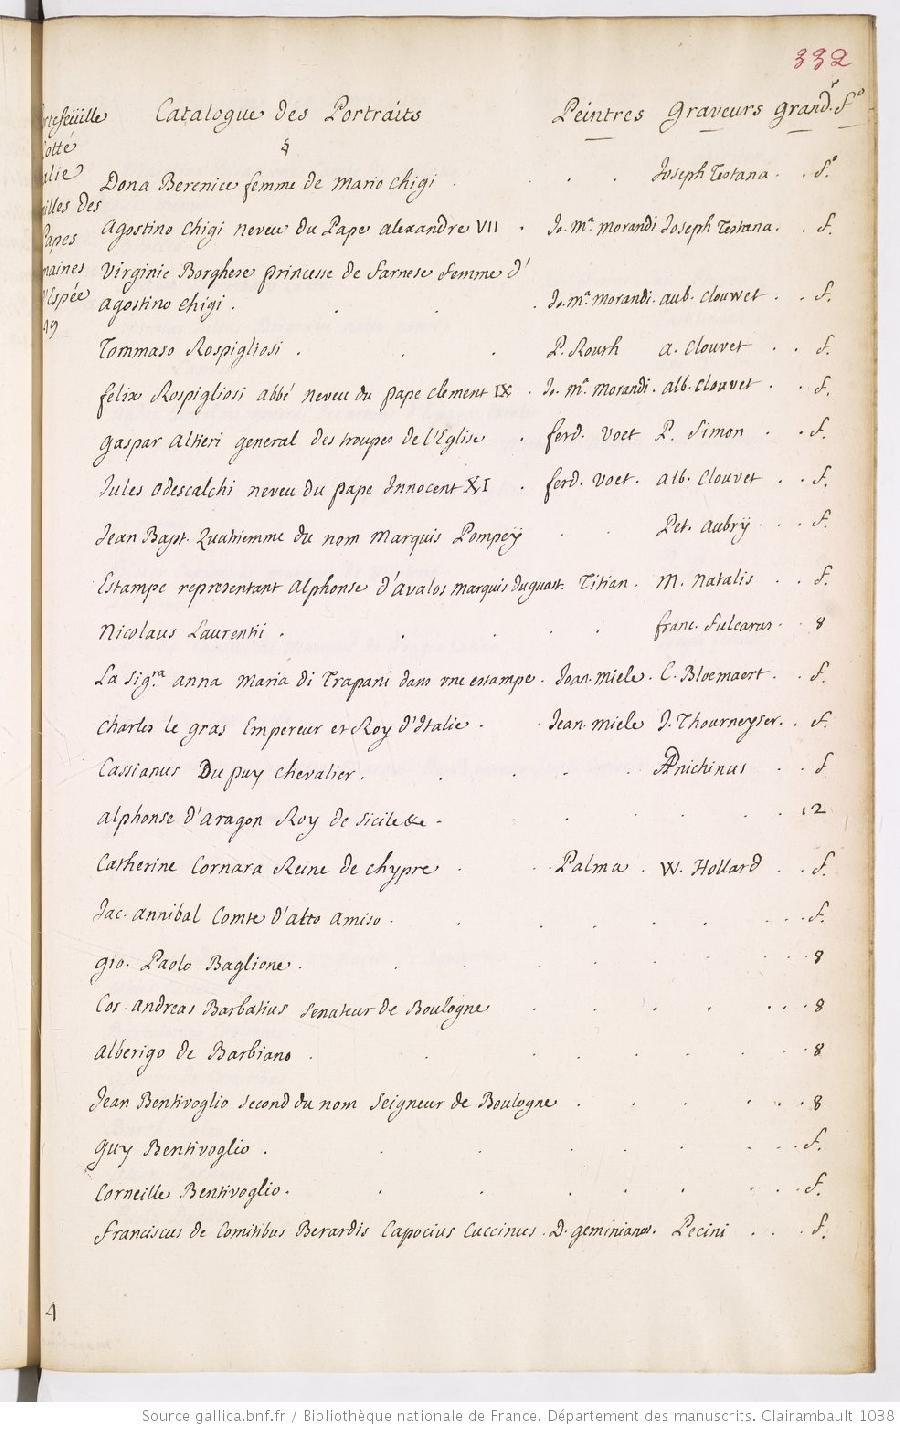 332
Catalogue des Portraits Peintres Graveurs Grandr. fo
Cotté
des
Papes
d'Espée
Dona Berenice femme de Mario Chigi . . . Joseph Testana . . fo.
Agostino Chigi neveu du Pape alexandre VII . Jo. Ma. Morandi Joseph Testana . f.
Virginie Borghese princesse de farnese femme d'
Agostino Chigi . . . . Jo. ma. morandi . aub. Clouwet . . f.
Tommaso Rospigliosi . . . P. Routh a. Clouvet . . f.
felix Rospigliosi abbé neveu du pape Clement IX . Jo. Ma. Morandi . alb. Clouvet . . f.
Gaspar Altieri general des troupes de l'Eglise . ferd. Voet P. Simon . . f.
Jules Odescalchi neveu du pape Innocent XI . ferd. Voet . alb. Clouvet . . f.
Jean Bapt. Quatriemme du nom Marquis Pompeÿ . . Pet. Aubrÿ . . f.
Estampe representant Alphonse d'Avalos marquis duguast . Titian . M. Natalis . . f.
Nicolaus Laurentii . . . . . franc. fulcarus . . 8
La Sigra. anna Maria di Trapani dans une estampe . Joan. miele . C. Bloemaert . . f.
Charles le gras Empereur et Roy d'Italie . Jean miele J. Thourneyser . . f.
Cassianus Du puy Chevalier . . . . . Anichinus . . f
Alphonse d'Aragon Roy de Sicile &c . . . . . . 12
Catherine Cornara Reine de Chypre . . Palma . W. Hollard . . f.
Jac. annibal Comte d'alto amiso . . . . . . . . f.
Gio. Paolo Baglione . . . . . . . . 8
Cos. Andreas Barbatius Senateur de Boulogne . . . . . . . 8
Alberigo de Barbiano . . . . . . . 8
Jean Bentivoglio second du nom Seigneur de Boulogne . . . . . . 8
Guy Bentivoglio . . . . . . . . f.
Corneille Bentivoglio . . . . . . . . f.
Franciscus de Comitibus Berardis Capocius Cuccinus . D. Geminianus . Pecini . . . f.
4
Source gallica.bnf.fr / Bibliothèque nationale de France. Département des manuscrits. Clairambault 1038